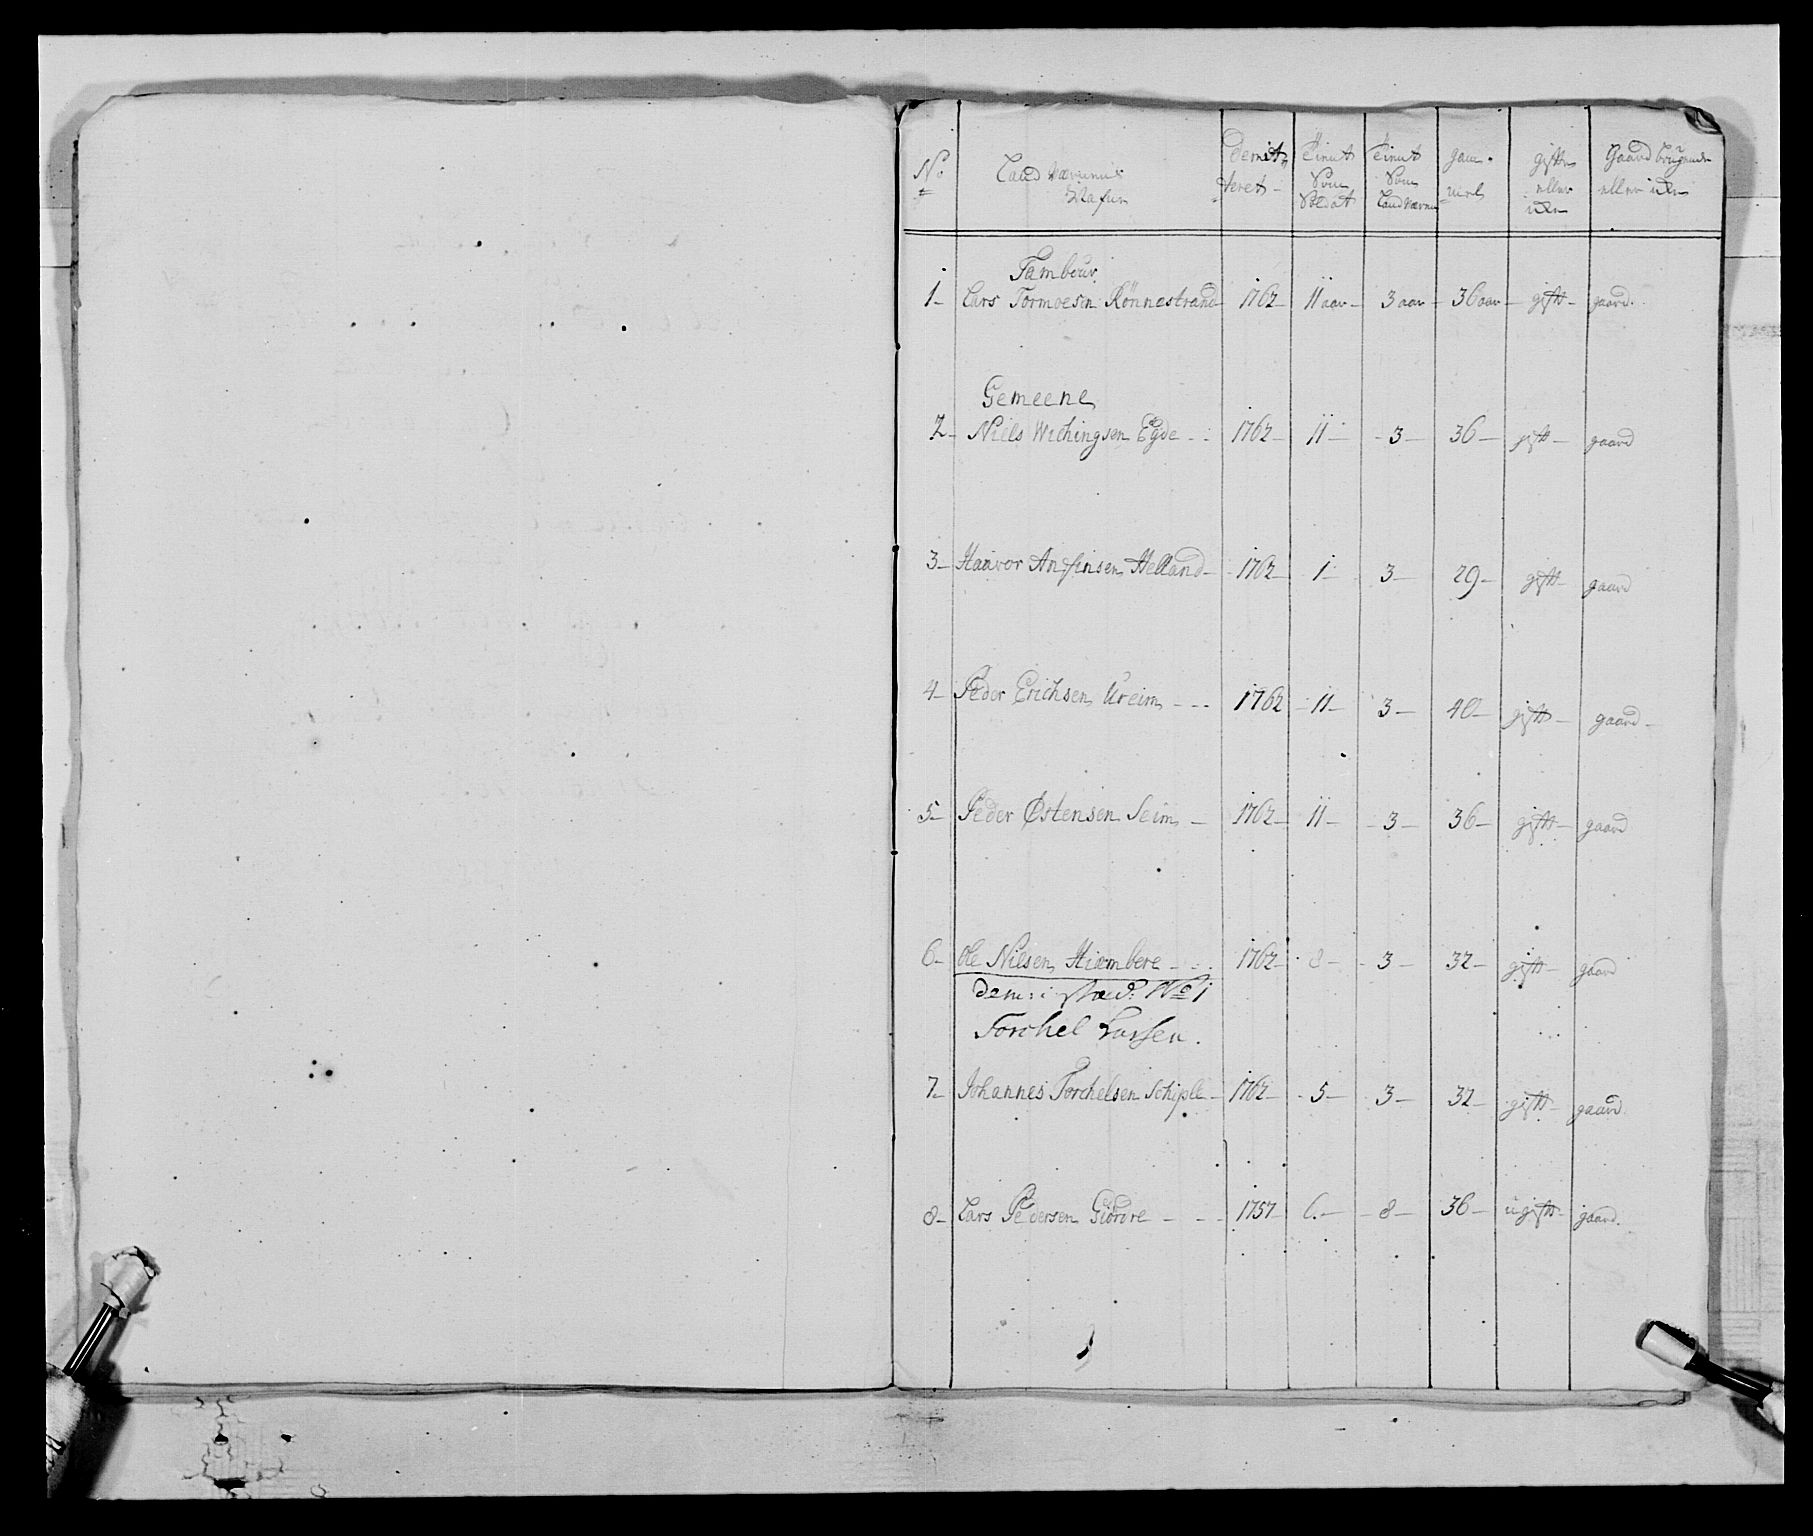 No Land Værnernis Nafne Demit„teret Tient Som Soldat Tient Som Land Værn gam„mel gifte eller icke Gaard brugende eller icke
Tambour
1 Lars Tormoesen Rönnestrand 1762 11 aar 3 aar 36 aar gift gaard.
Gemeene
2 Niels Wichingsen Egde 1762 11 3 36 gift gaard
3 Haavor Anfinsen Helland 1762 1 3 29 gift gaard
4 Peder Erichsen Ureim 1762 11 3 40 gift gaard
5 Peder Østensen Seim 1762 11 3 36 gift gaard
6 Ole Nilsen Hiæmbere 1762 8 3 32 gift gaard
dem: i stæd: No 1
Torchel Larsen.
7 Johannes Torchelsen Schiple 1762 5 3 32 gift gaard
8 Lars Pedersen Giördre 1757 6 8 36 ugift gaard.